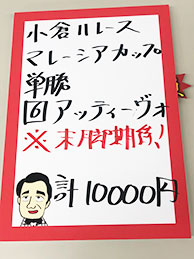 小倉11レース
マレーシアカップ
単勝
⑪アッティーヴォ
※末脚期待!
計10000円